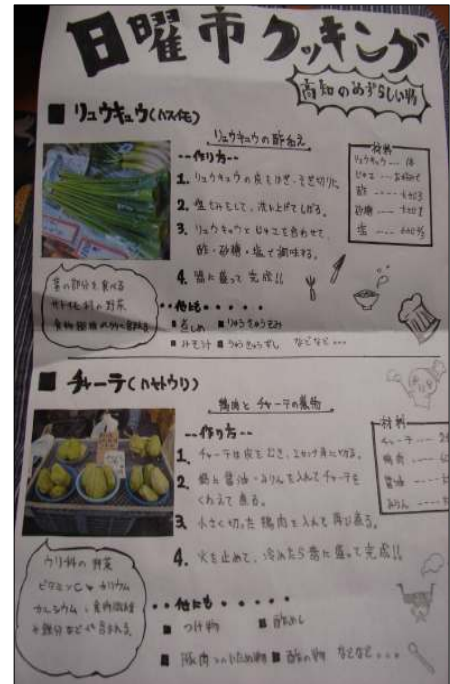 日曜市クッキング
高知のめずらしい物
■ リュウキュウ(ハスイモ)
リュウキュウの酢和え
--作り方--
1. リュウキュウの皮をはぎ、そぎ切りに。
2. 塩もみをして、洗い上げてしぼる。
3. リュウキュウとじゃこを合わせて、
酢・砂糖・塩で調味する。
4. 器に盛って完成!!
材料
リュウキュウ
じゃこ
酢
砂糖
塩
茎の部分を食べる
の野菜
食物繊維
他にも
■ りゅうきゅうもみ
■ みそ汁 ■ りゅうきゅうずし などなど...
■ チャーテ(ハヤトウリ)
鶏肉とチャーテの煮物
--作り方--
1. チャーテは皮をむき、に切る。
2. 鍋に醤油・みりんを入れてチャーテを
くわえて煮る。
3. 小さく切った鶏肉を入れて再び煮る。
4. 火を止めて、冷めたら器に盛って完成!!
材料
チャーテ
鶏肉
醤油
みりん
ウリ科の野菜
ビタミンCやカリウム
カルシウム、食物繊維
や鉄分などが含まれる。
他にも
■ つけ物 ■ 酢めし
■ 豚肉とのいため物 ■ 酢の物 などなど...